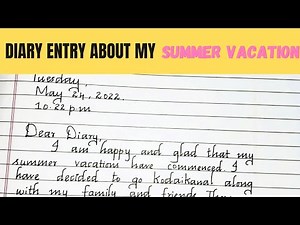 DIARY ENTRY ABOUT MY SUMMER VACATION
Tuesday,
May 24, 2022.
10:22 p.m
Dear Diary,
I am happy and glad that my
summer vacation have commenced. I
have decided to go Kodaikanal along
with my family and friends.